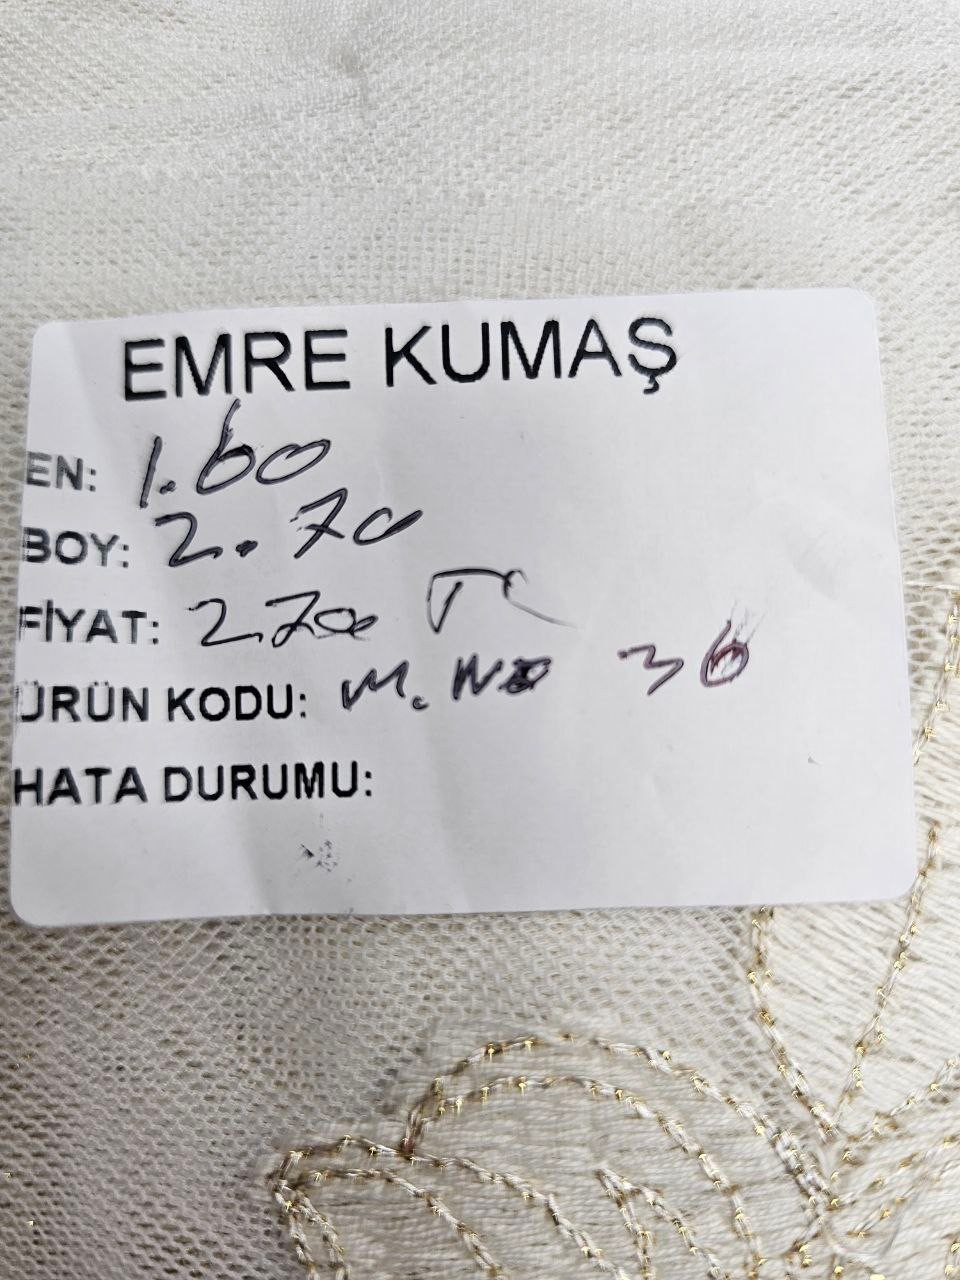 EMRE KUMAŞ
EN: 1.60
BOY: 2.70
FİYAT: 270
ÜRÜN KODU: M. NO 36
HATA DURUMU: